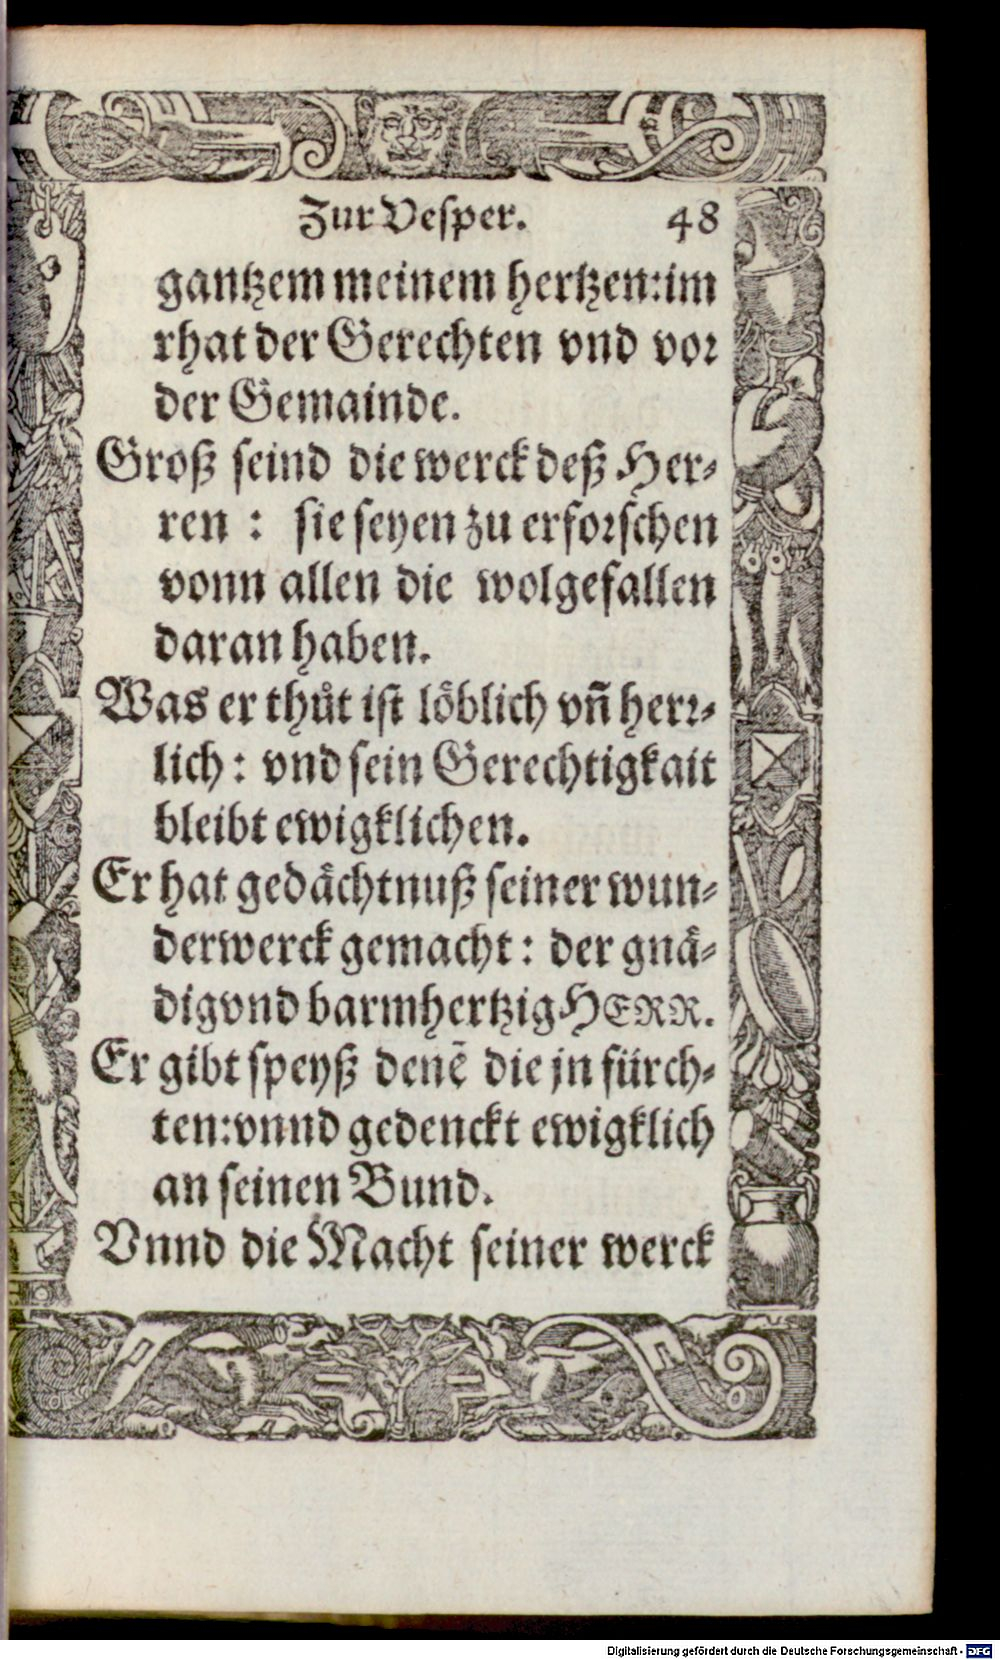 Zur Vesper. 48
gantzem meinem hertzen: im
rhat der Gerechten vnd vor
der Gemainde.
Groß seind die werck deß Her⸗
ren : sie seyen zu erforschen
vonn allen die wolgefallen
daran haben.
Was er thůt ist löblich vñ herr⸗
lich : vnd sein Gerechtigkait
bleibt ewigklichen.
Er hat gedächtnuß seiner wun⸗
derwerck gemacht : der gnä⸗
dig vnd barmhertzig HERR.
Er gibt speyß denẽ die jn fürch⸗
ten: vnnd gedenckt ewigklich
an seinen Bund.
Vnnd die Macht seiner werck
Digitalisierung gefördert durch die Deutsche Forschungsgemeinschaft - DFG